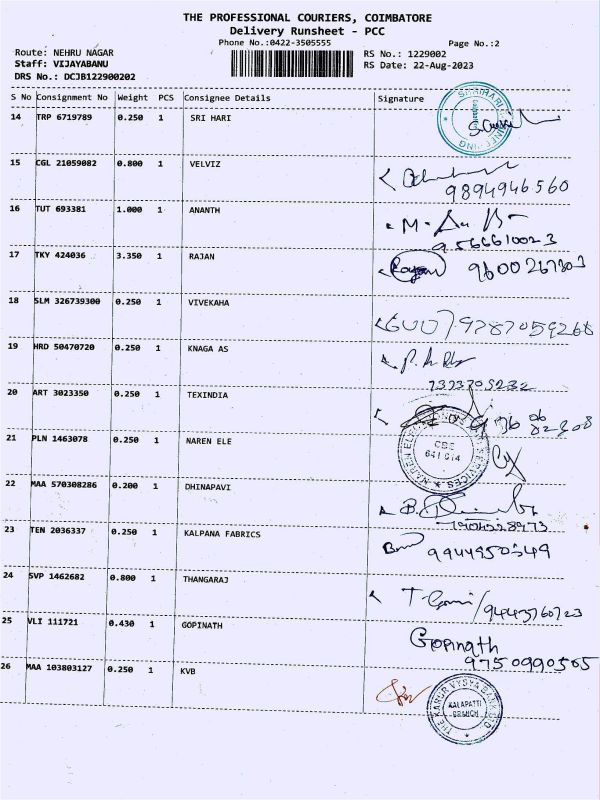 THE PROFESSIONAL COURIERS, COIMBATORE
Delivery Runsheet - PCC
Phone No.:0422-3505555
Page No.:2
Route: NEHRU NAGAR
RS No.: 1229002
Staff: VIJAYABANU
RS Date: 22-Aug-2023
DRS No.: DCJB122900202
S No Consignment No Weight PCS Consignee Details Signature
14 TRP 6719789 0.250 1 SRI HARI
15 CGL 21059082 0.800 1 VELVIZ
9894946560
16 TUT 693381 1.000 1 ANANTH
9566610023
17 TKY 424036 3.350 1 RAJAN
Rajan 9600267303
18 SLM 326739300 0.250 1 VIVEKAHA
9787059268
19 HRD 50470720 0.250 1 KNAGA AS
20 ART 3023350 0.250 1 TEXINDIA
21 PLN 1463078 0.250 1 NAREN ELE
CBE
641 014
22 MAA 570308286 0.200 1 DHINAPAVI
23 TEN 2036337 0.250 1 KALPANA FABRICS
24 SVP 1462682 0.800 1 THANGARAJ
25 VLI 111721 0.430 1 GOPINATH
Gopinath
9750990505
26 MAA 103803127 0.250 1 KVB
THE KARUR VYSYA BANK LTD
KALAPATTI
BRANCH